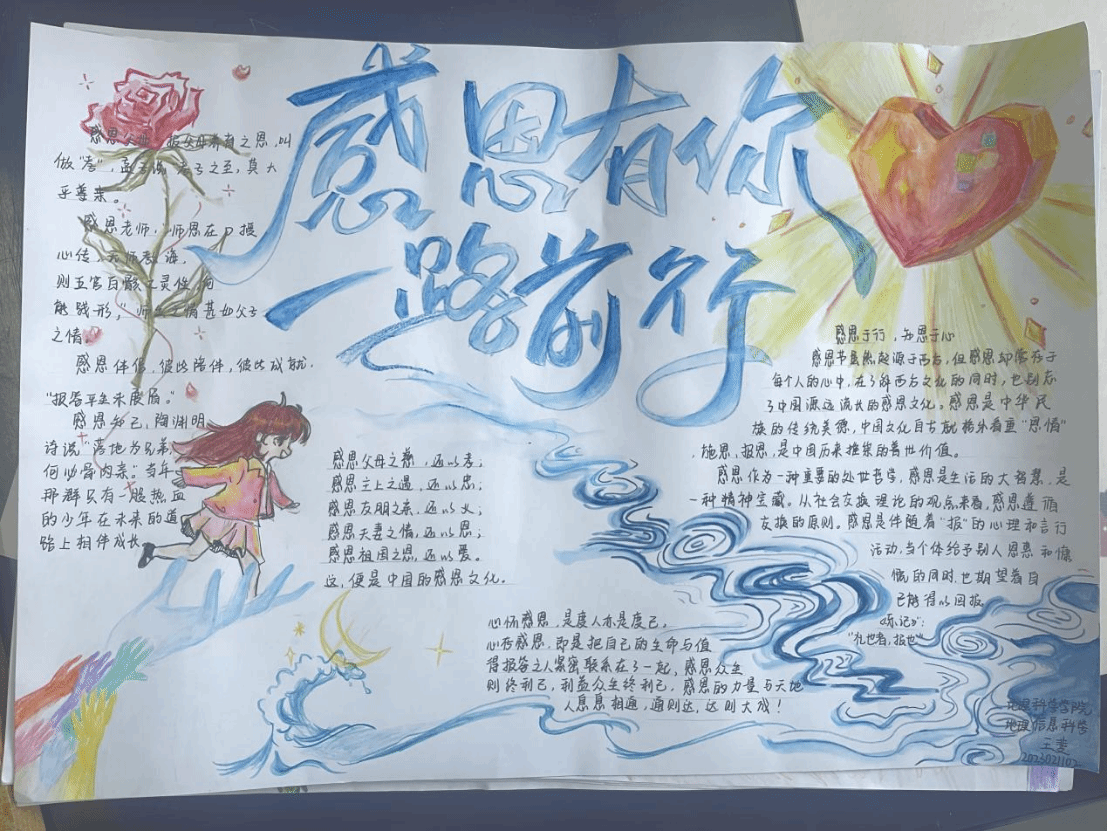 感恩有你
一路前行
感恩父母,报父母养育之恩,叫
做“孝”,孟子说“孝子之至,莫大
乎尊亲。
感恩老师,“师恩在口授
心传,无师教诲,
则五官百骸之灵性
能践形,”师生之情甚如父子
之情。
感恩伴侣,彼此陪伴,彼此成就.
“报答平生未展眉。”
感恩知己,陶渊明
诗说“落地为兄弟,
何必骨肉亲”当年
那群只有一股热血
的少年在未来的道
路上相伴成长
感恩父母之慈,还以孝;
感恩主上之遇,还以忠;
感恩友朋之亲,还以义;
感恩夫妻之情,还以恩;
感恩祖国之恩,还以爱。
这,便是中国的感恩文化。
感恩于行,为恩于心
感恩节虽然起源于西方,但感恩却常存于
每个人的心中,在了解西方文化的同时,也别忘
了中国源远流长的感恩文化。感恩是中华民
族的传统美德,中国文化自古就格外看重“恩情”
,施恩,报恩,是中国历来推崇的普世价值。
感恩作为一种重要的处世哲学,感恩是生活的大智慧,是
一种精神宝藏。从社会交换理论的观点来看,感恩遵循
交换的原则。感恩是伴随着“报”的心理和言行
活动,当个体给予别人恩惠和慷
慨的同时,也期望着自
己能得以回报
《乐记》:
“礼也者,报也”
心怀感恩,是度人亦是度己。
心存感恩,即是把自己的生命与值
得报答之人紧密联系在了一起,感恩众生
则终利己,利益众生终利己,感恩的力量与天地
人息息相通,通则达,达则大成!
地理科学学院
地理信息科学
2023021102